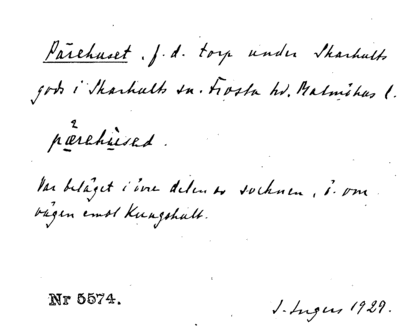 Pärehuset, f. d. torp under Skarhults
gods i Skarhults sn. Frosta hd. Malmöhus l.
pærehused.
Var beläget i övre delen av socknen, ö. om
vägen emot Kungshult.
Nr 5574.
I. Ingers 1929.